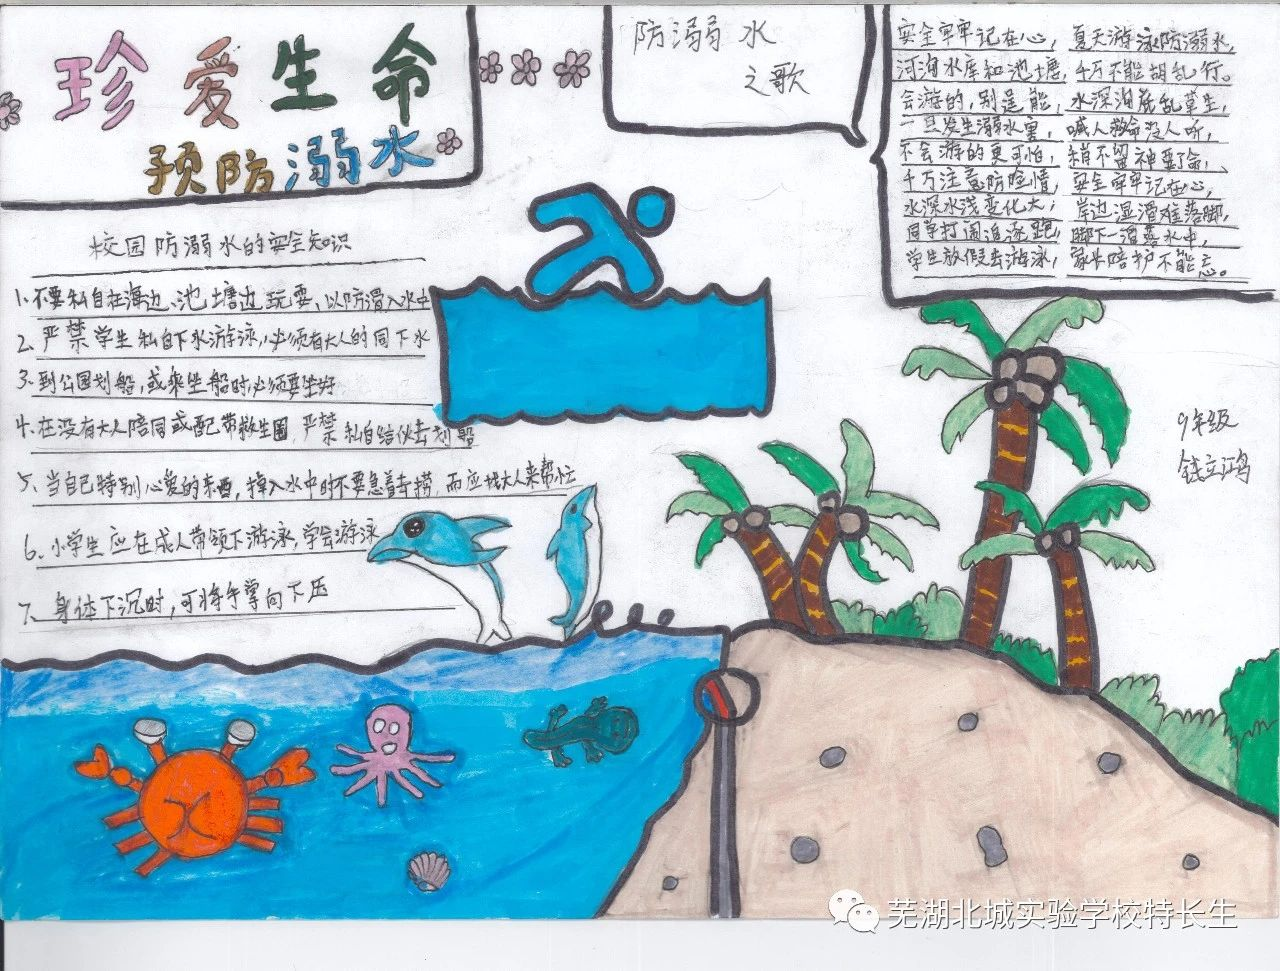 珍爱生命
预防溺水
防溺水
之歌
安全牢牢记在心，夏天游泳防溺水，
河沟水库和池塘，千万不能胡乱行。
会游的，别逞能，水深沟底乱草生，
一旦发生溺水事，喊人救命没人听，
不会游的更可怕，稍不留神要了命，
千万注意防险情，安全牢牢记在心，
水深水浅变化大，岸边湿滑难落脚，
同学打闹追逐跑，脚下一滑落水中，
学生放假去游泳，家长陪护不能忘。
校园防溺水的安全知识
1、不要私自在海边、池塘边玩耍，以防滑入水中
2、严禁学生私自下水游泳，必须有大人的同下水
3、到公园划船，或乘坐船时必须要坐好
4、在没有大人陪同或配带救生圈，严禁私自结伙去划船
5、当自己特别心爱的东西，掉入水中时不要急着去捞，而应找大人来帮忙
6、小学生应在成人带领下游泳，学会游泳
7、身体下沉时，可将手掌向下压
9年级
钱立鸿
芜湖北城实验学校特长生